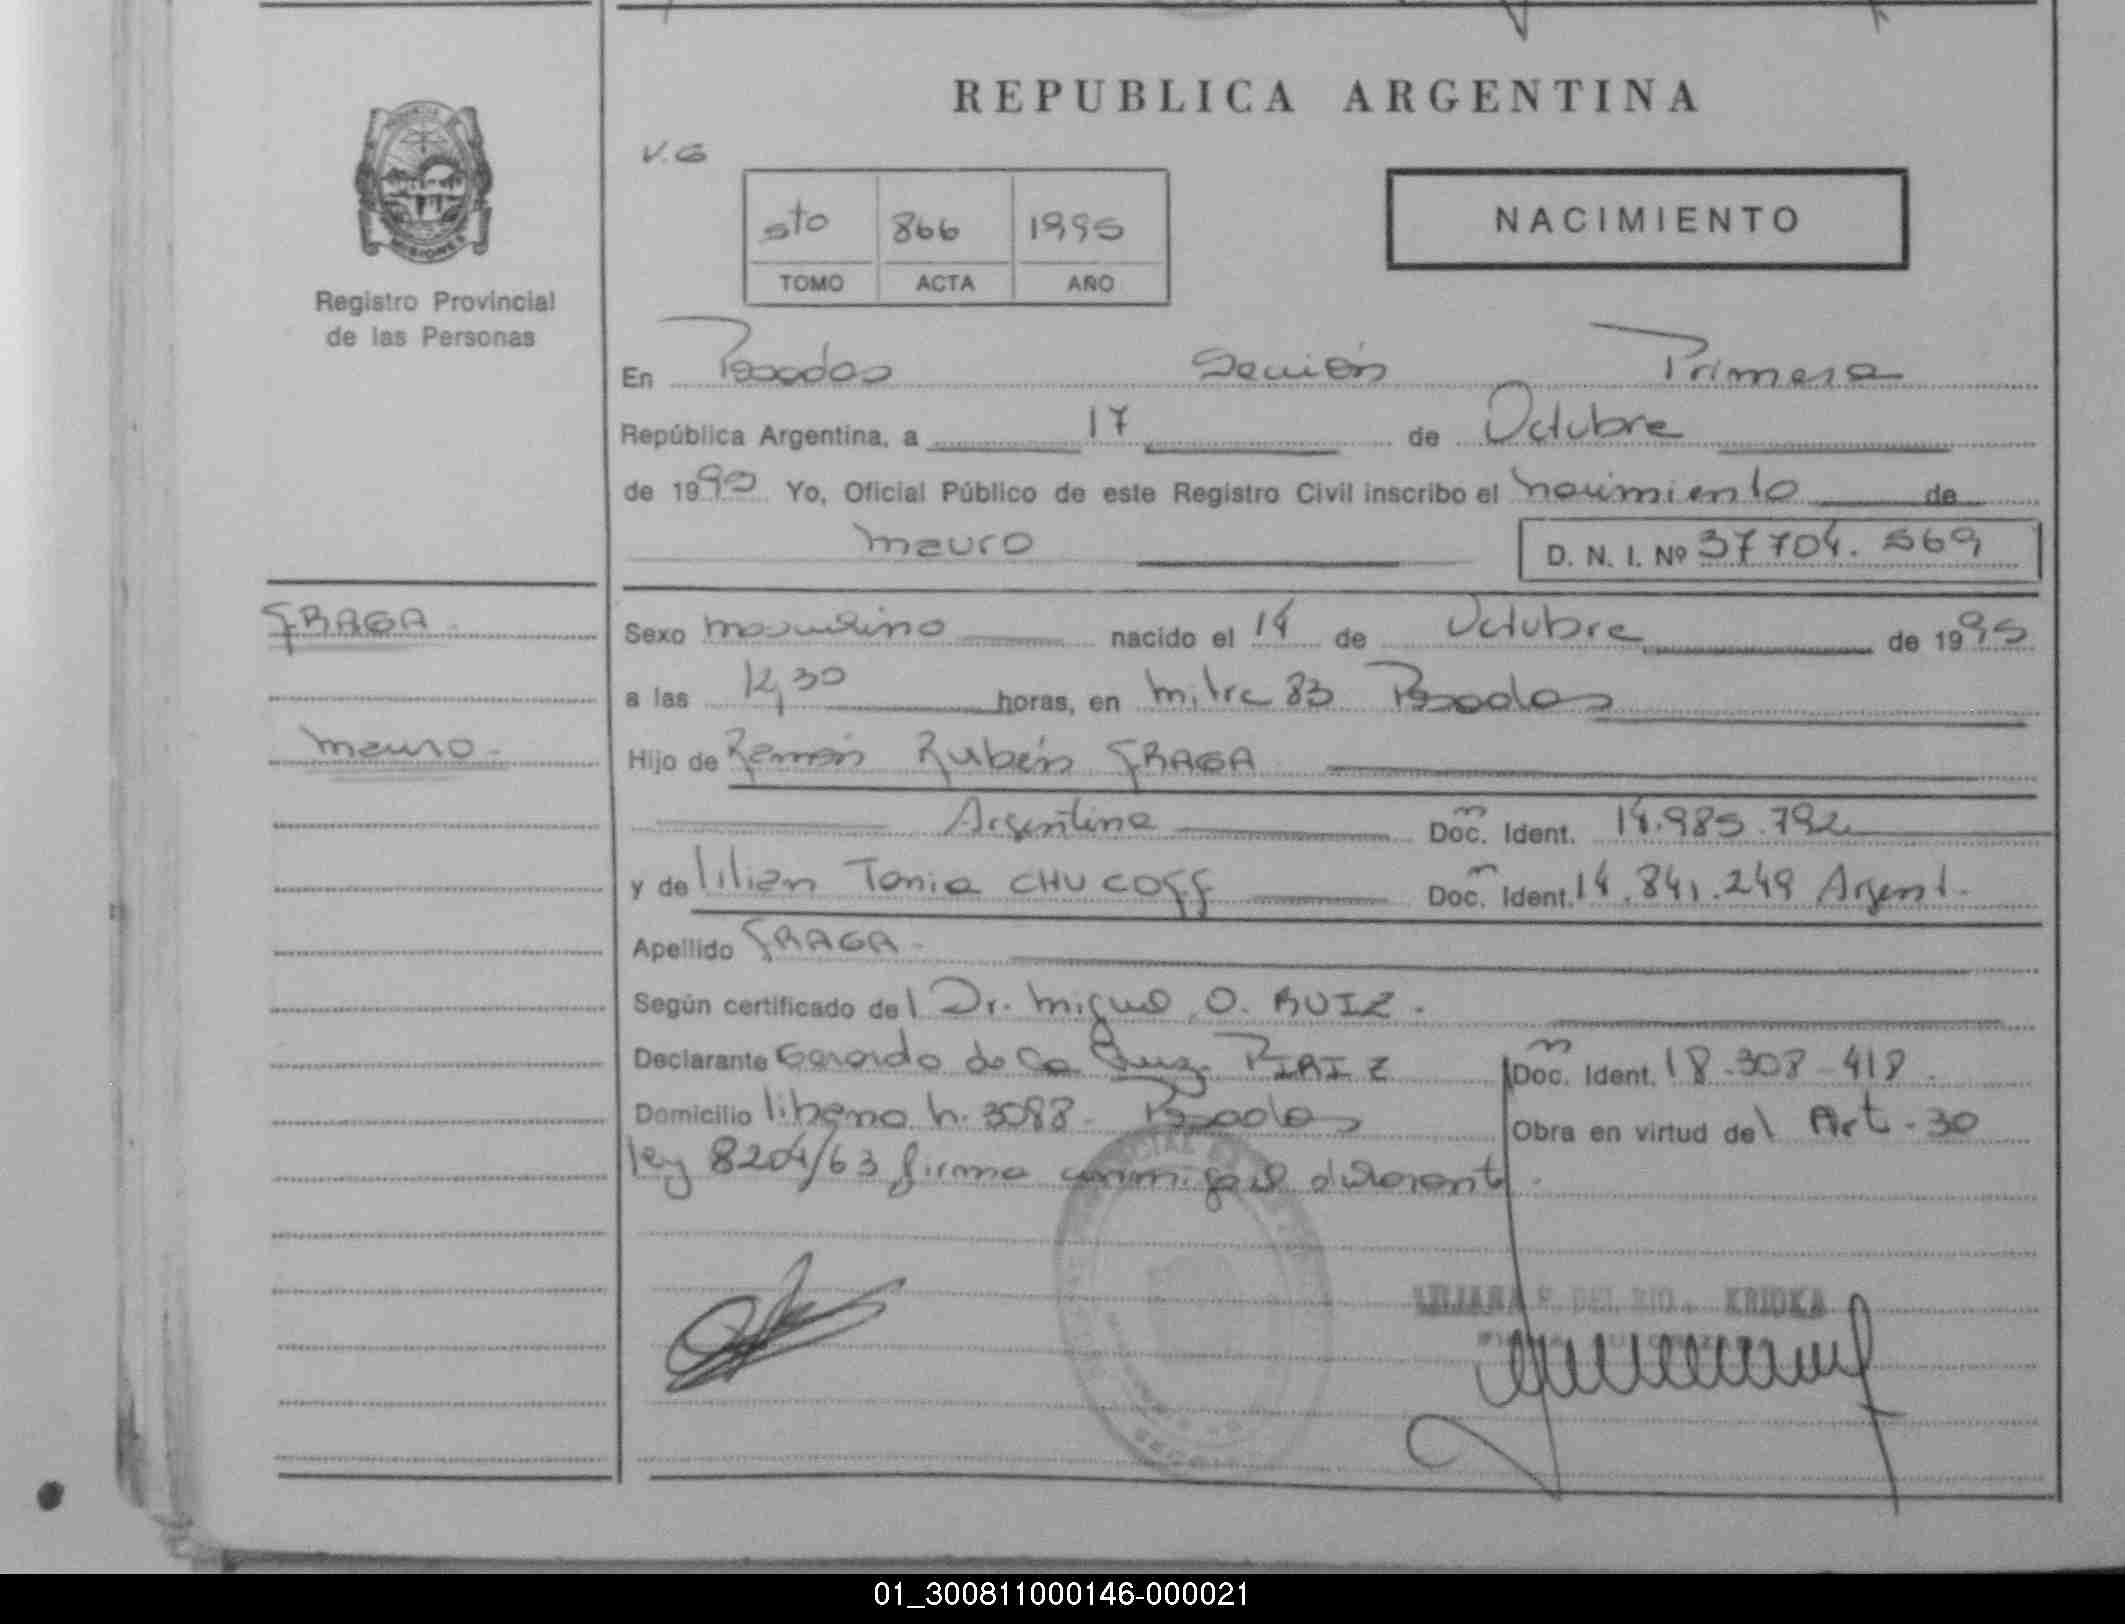 REPUBLICA ARGENTINA
V.G
5to 866 1995
TOMO ACTA AÑO
NACIMIENTO
MISIONES
Registro Provincial
de las Personas
En Posadas Sección Primera
República Argentina, a 17 de Octubre
de 1995 Yo, Oficial Público de este Registro Civil inscribo el nacimiento de
Mauro D. N. I. Nº 37704.569
FRAGA
Sexo masculino nacido el 14 de Octubre de 1995
a las 12,30 horas, en Mitre 83 Posadas
Mauro
Hijo de Ramón Rubén FRAGA
Argentina Doc. Ident. 14.985.792
y de Lilian Tania CHUCOFF Doc. Ident. 14.841.249 Argent.
Apellido FRAGA
Según certificado del Dr. Miguel O. RUIZ.
Declarante Gerardo de la Cruz PIRIZ Doc. Ident. 18.308.418
Domicilio h. 3088 - Posadas Obra en virtud del Art. 30
ley 8204/63 firma conmigo el declarante.
LILIANA DEL RIO KRIDKA
01_300811000146-000021